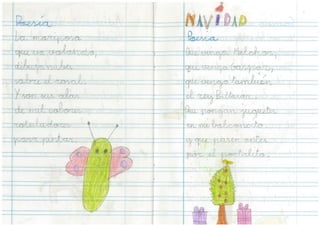 Poesía
La mariposa
que va volando,
dibujaba
sobre el rosal.
Y son sus alas
de mil colores
rotuladores
para pintar.
NAVIDAD
Poesía
Que venga Melchor,
que venga Gaspar,
que venga también
el rey Baltasar.
Que pongan juguetes
en mi balconcito
y que pasen antes
por el portalito.